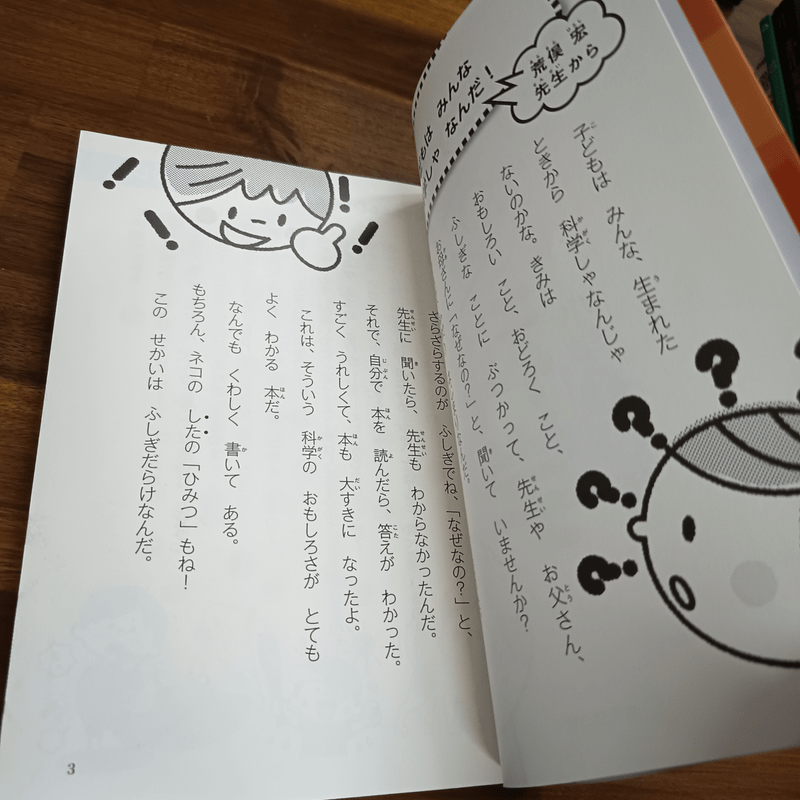 荒俣 宏
先生から
もは みんな
しゃ なんだ！
子どもは みんな、生まれた
ときから 科学しゃなんじゃ
ないのかな。きみは
おもしろい こと、おどろく こと、
ふしぎな ことに ぶつかって、先生や お父さん、
お母さんに「なぜなの？」と、聞いて いませんか？
さらさらするのが ふしぎでね、「なぜなの？」と、
先生に 聞いたら、先生も わからなかったんだ。
それで、自分で 本を 読んだら、答えが わかった。
すごく うれしくて、本も 大すきに なったよ。
これは、そういう 科学の おもしろさが とても
よく わかる 本だ。
なんでも くわしく 書いて ある。
もちろん、ネコの したの「ひみつ」もね！
この せかいは ふしぎだらけなんだ。
3